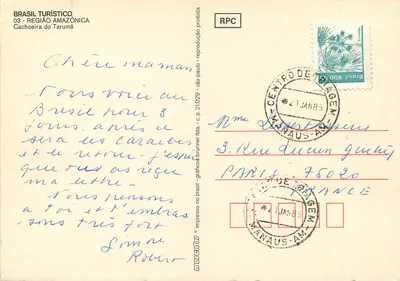 BRASIL TURÍSTICO
03 - REGIÃO AMAZÔNICA
Cachoeira do Tarumã
RPC
Chère maman
Nous voici au
Brésil pour 3
jours, après ce
sera les Caraïbes
et le retour. J'espère
que tu as reçu
ma lettre.
Nous pensons
à toi et t'embras
sons très fort
Simone
Robert
mercator ® impresso no brasil • gráficos brunner ltda. - c. p. 21.029 - são paulo - reprodução proibida
BRASIL 85
CENTRO DE TRIAGEM
21 JAN 85
MANAUS-AM
Mme
3 Rue Lucien
PARIS 75020
FRANCE
CENTRO DE TRIAGEM
21 JAN 85
MANAUS-AM